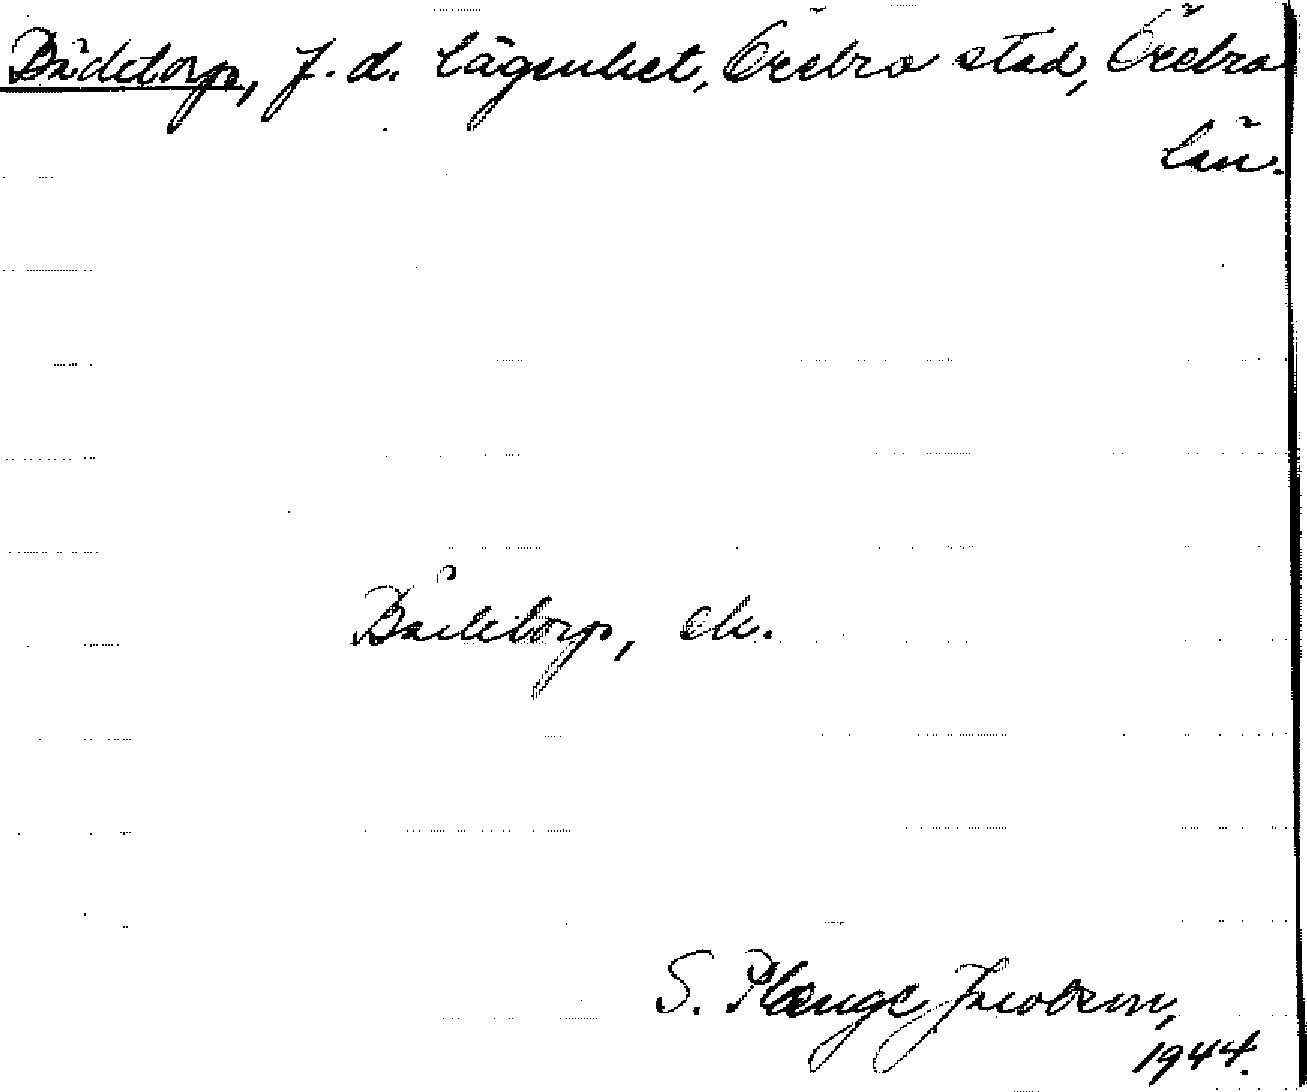 Bådetorp, f.d. lägenhet, Örebro stad, Örebro
län.
Bådetorp, ek.
S. Plænge Jacobson,
1944.